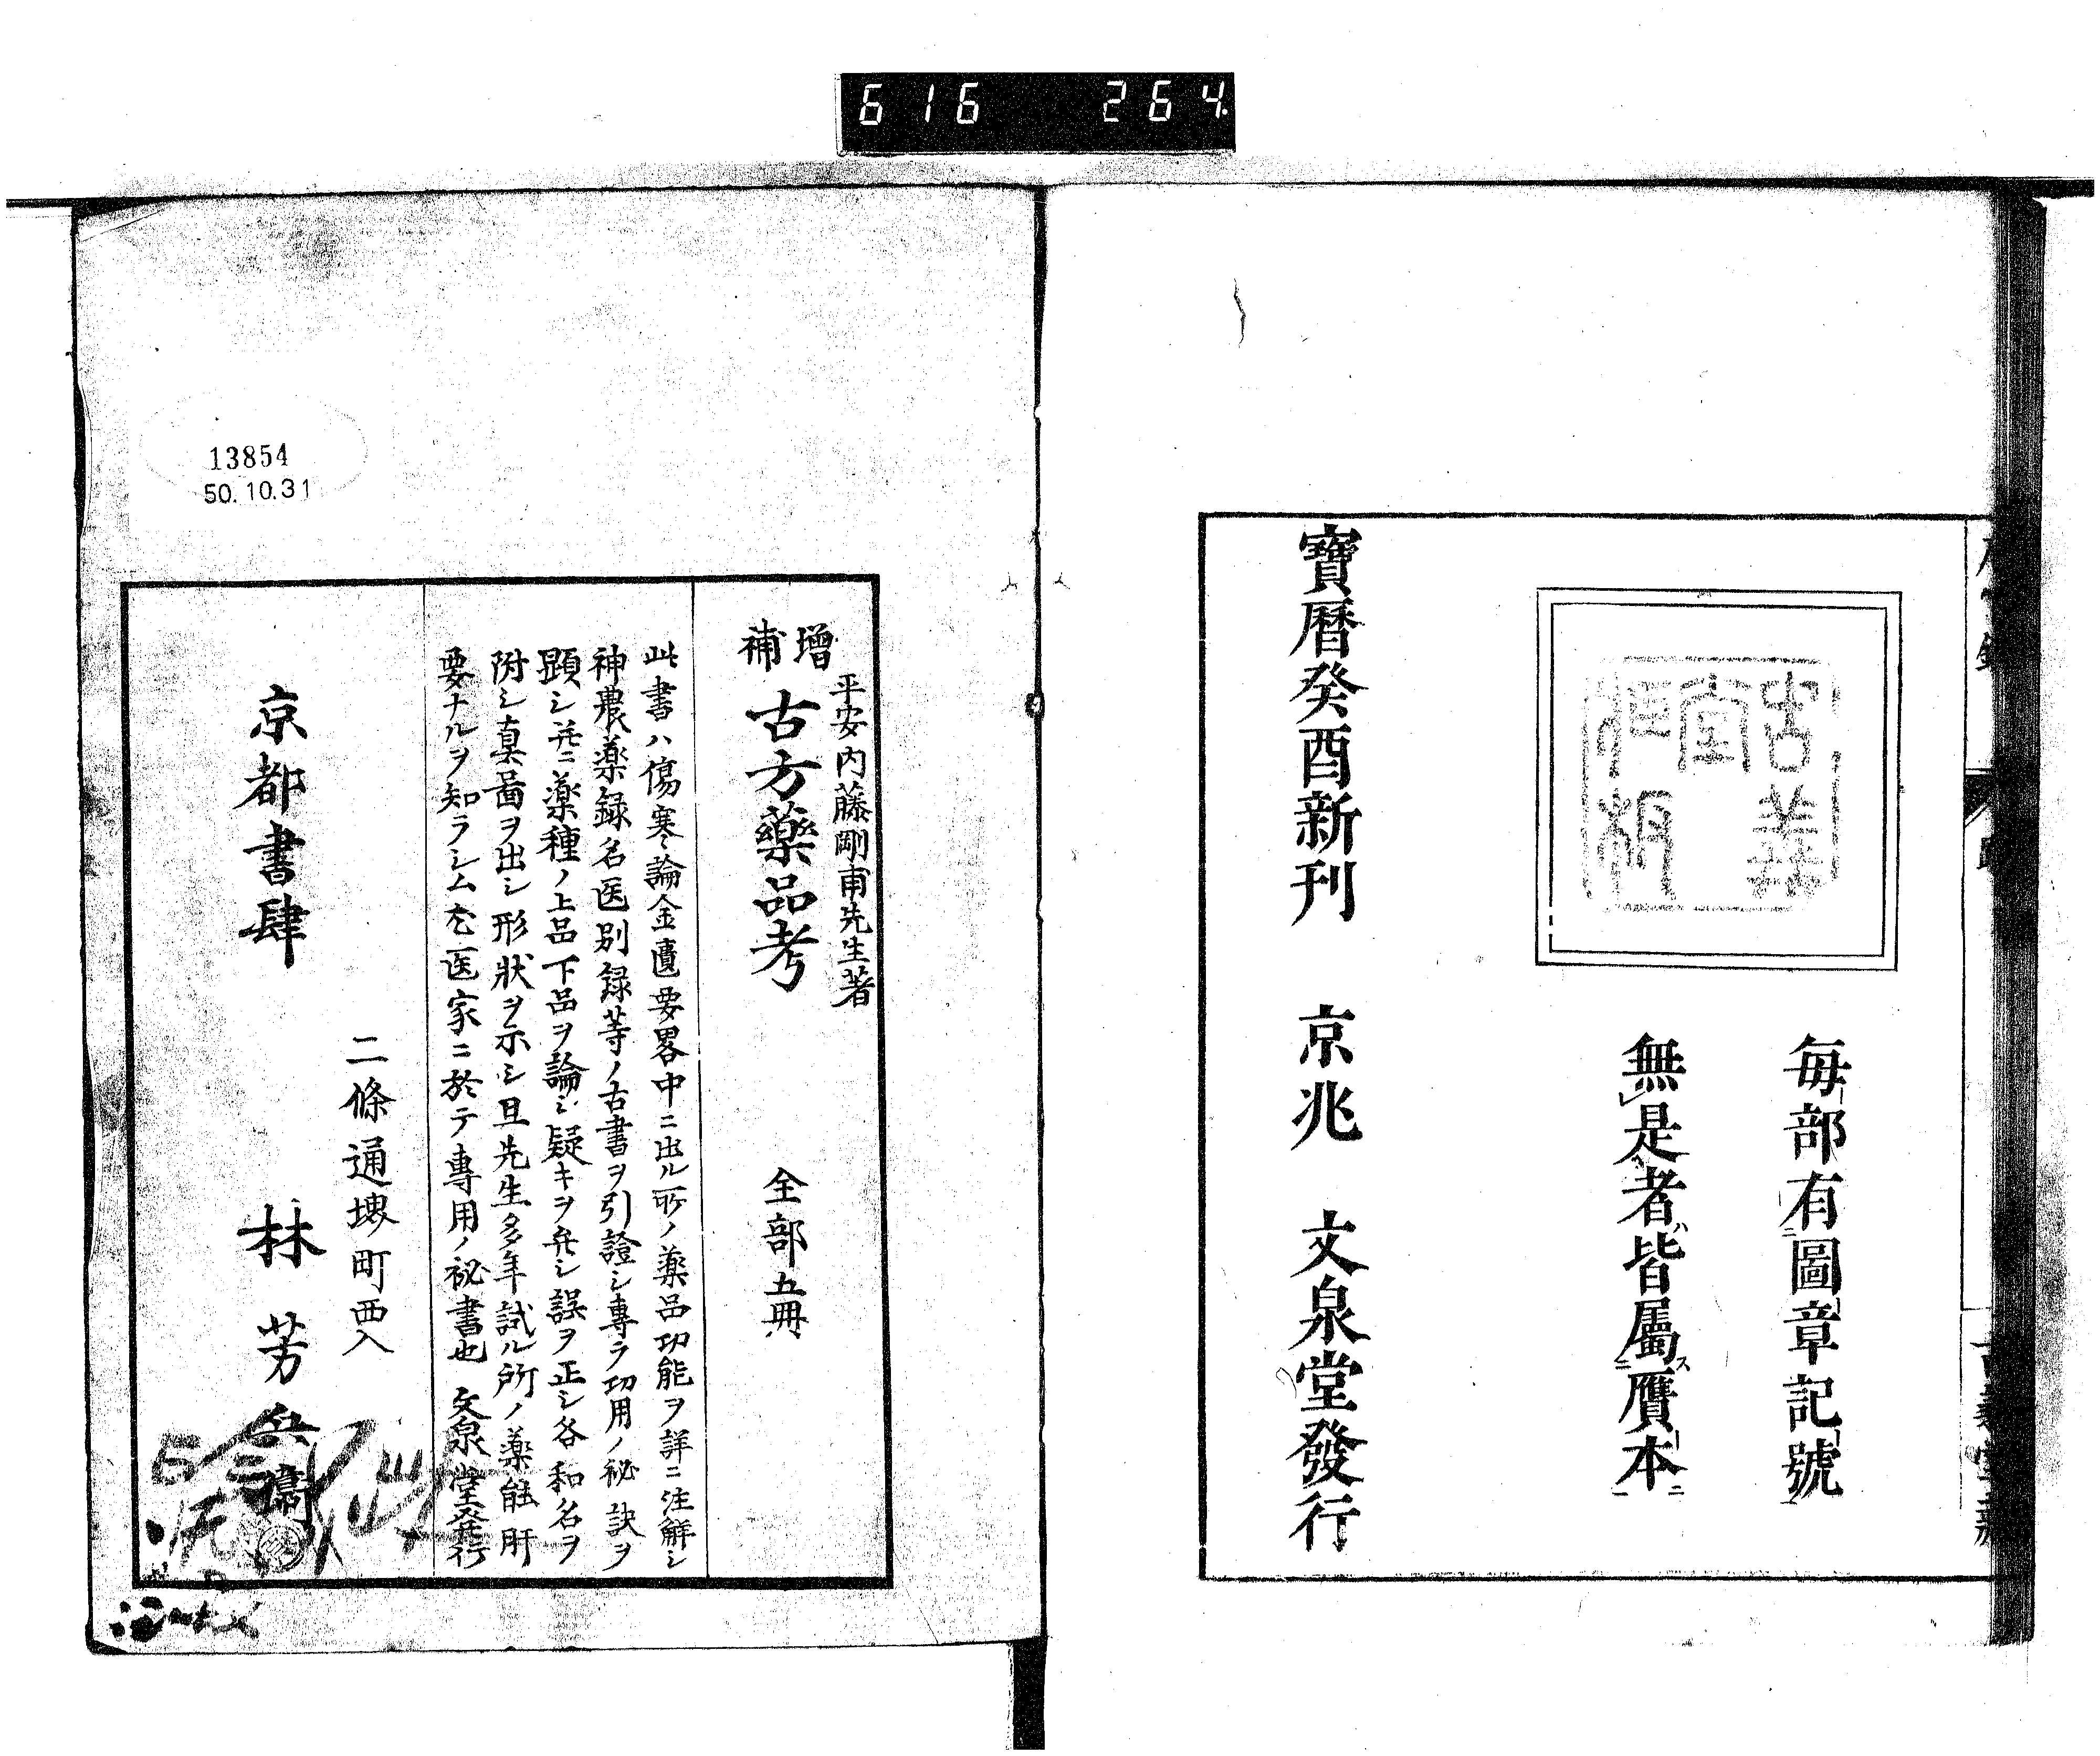 616 264
古義
堂
毎部有圖章記號
無是者ハ皆屬ス贋本ニ
寶曆癸酉新刊 京兆 文泉堂發行
平安内藤剛甫先生著
增補 古方藥品考 全部五冊
此書ハ傷寒論金匱要畧中ニ出ル所ノ薬品功能ヲ詳ニ注解シ
神農薬録名医別録等ノ古書ヲ引證シ專ラ功用ノ秘訣ヲ
顕シ并ニ薬種ノ上品下品ヲ論シ疑キヲ弁シ誤ヲ正シ各和名ヲ
附シ真啚ヲ出シ形狀ヲ示シ且先生多年試ル所ノ薬能肝
要ナルヲ知ラシム尤医家ニ於テ專用ノ秘書也 文泉堂発行
二條通堺町西入
京都書肆 林芳兵衞
13854
50.10.31